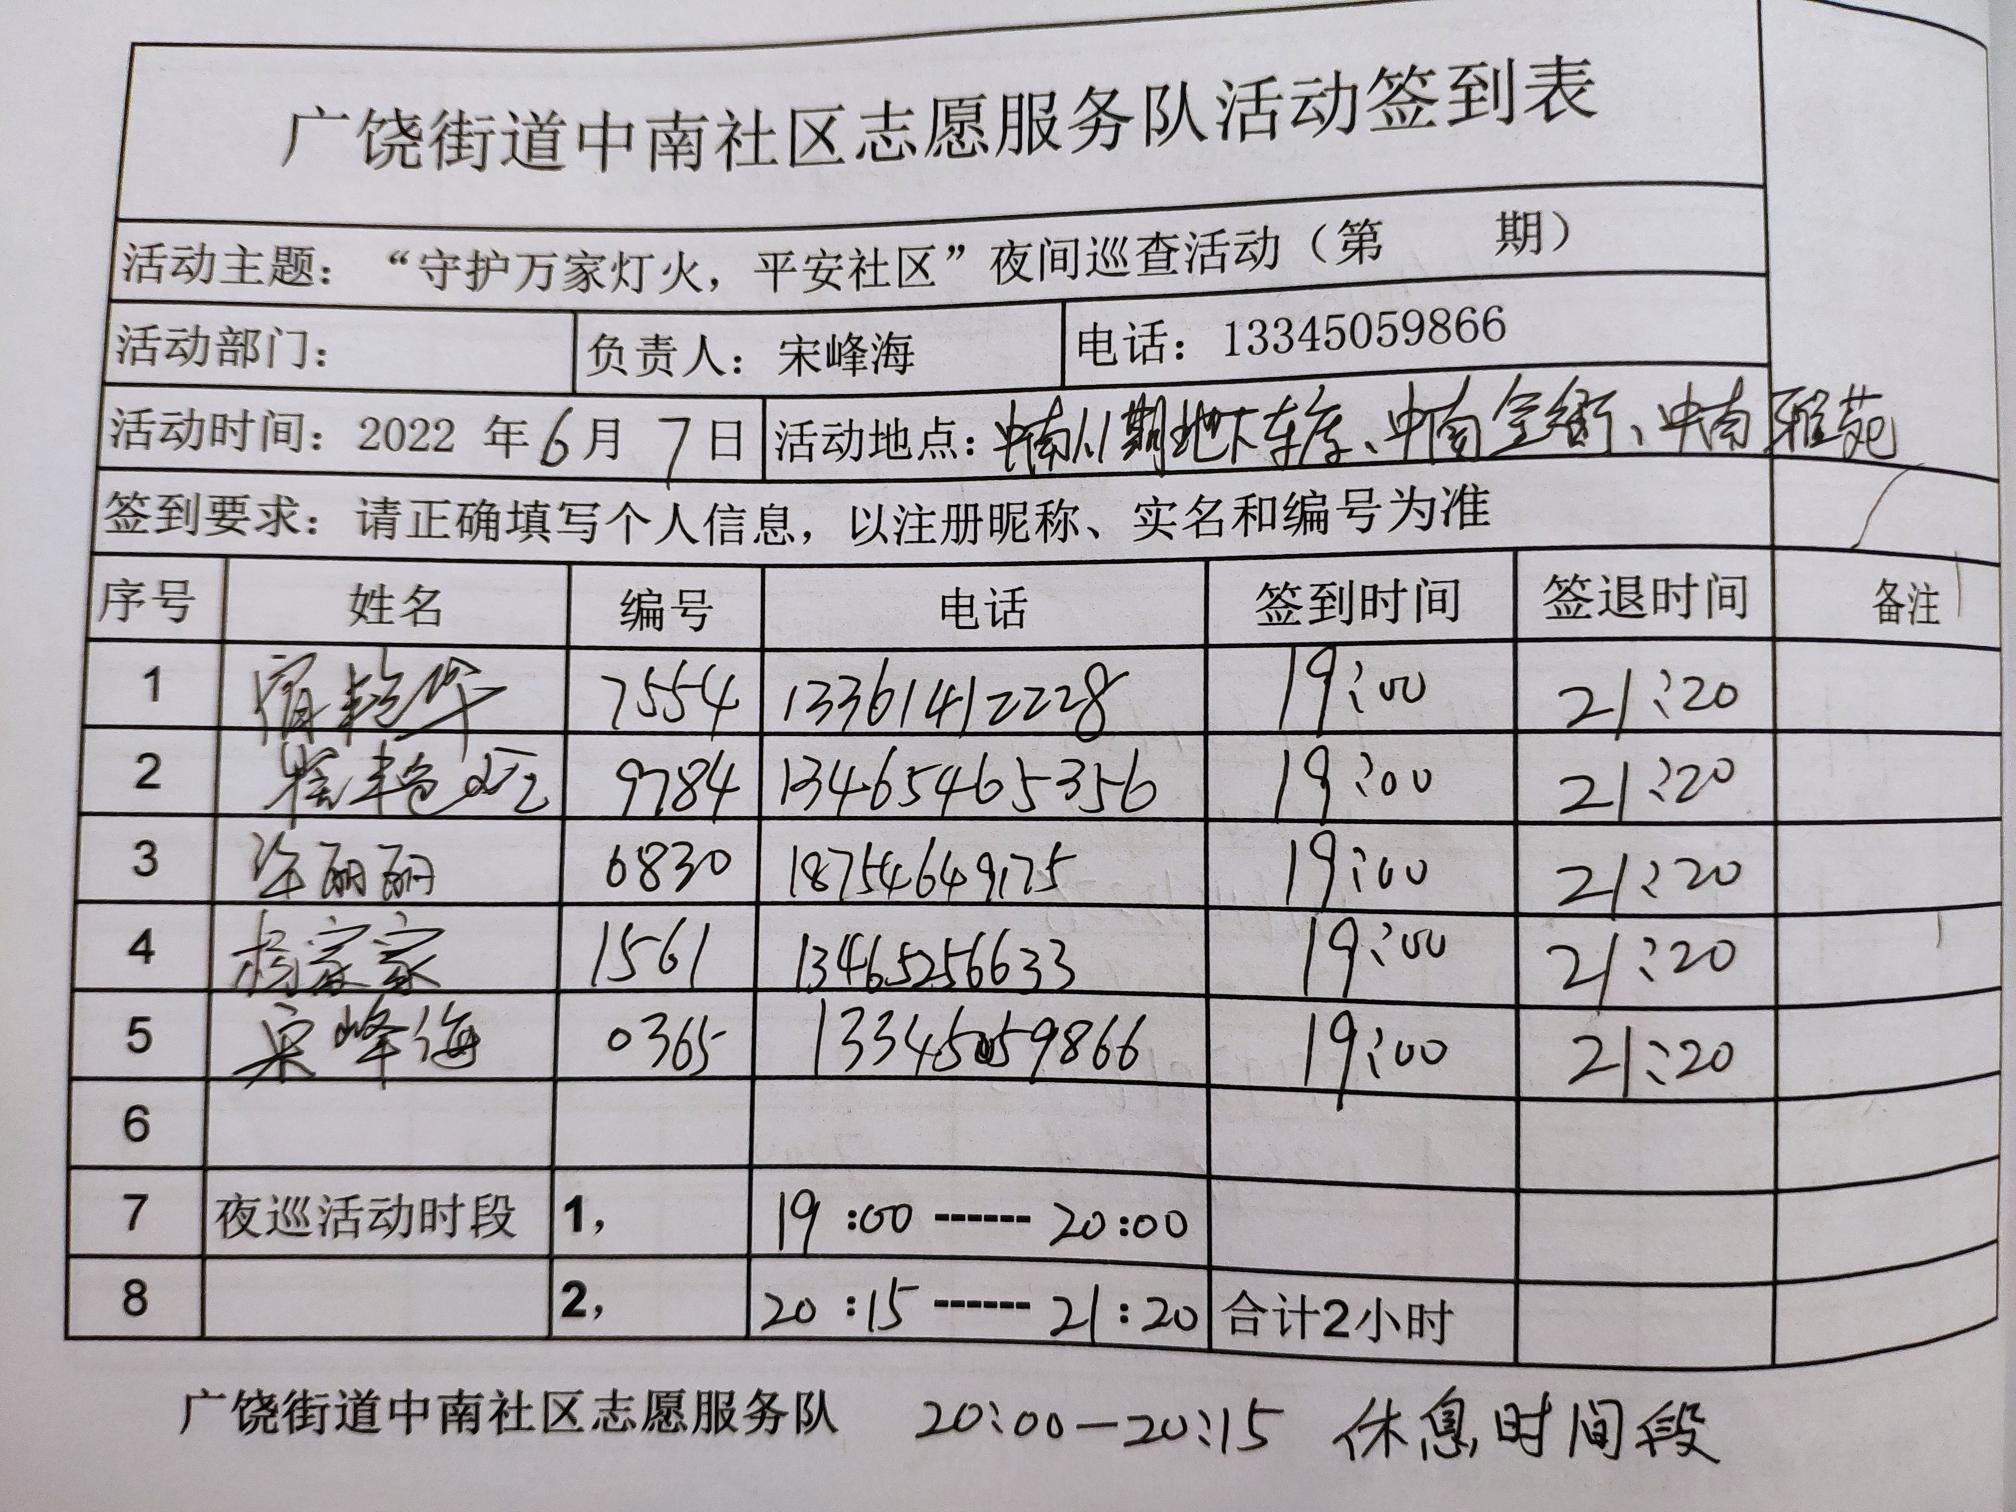 广饶街道中南社区志愿服务队活动签到表
活动主题：“守护万家灯火，平安社区”夜间巡查活动（第 期）
活动部门： 负责人：宋峰海 电话：13345059866
活动时间：2022 年6月7日 活动地点：中南 期地下车库、中南金街、中南雅苑
签到要求：请正确填写个人信息，以注册昵称、实名和编号为准
序号 姓名 编号 电话 签到时间 签退时间 备注
1 7554 13361412228 19:00 21:20
2 9784 13465465356 19:00 21:20
3 许丽丽 6830 18754649175 19:00 21:20
4 杨家家 1561 13465256633 19:00 21:20
5 宋峰海 0365 13345059866 19:00 21:20
6
7 夜巡活动时段 1， 19:00 ------ 20:00
8 2， 20:15 ------ 21:20 合计2小时
广饶街道中南社区志愿服务队 20:00—20:15 休息时间段